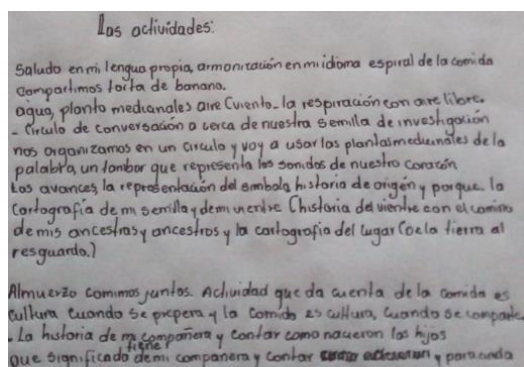 Las actividades:
Saludo en mi lengua propia, armonización en mi idioma espiral de la comida
Compartimos torta de banano.
agua, planta medicinales aire (viento - la respiración con aire libre.
- Circulo de conversación a cerca de nuestra semilla de investigación
nos organizamos en un circulo y voy a usar las plantas medicinales de la
palabra, un tambor que representa los sonidos de nuestro corazón
Los avances, la representación del simbolo historia de origén y porque. la
Cartografía de mi semilla y de mi vientre (historia del vientre con el camino
de mis ancestras y ancestros y la cartografía del lugar (de la tierra al
resguardo.)
Almuerzo comimos juntos. Actividad que da cuenta de la comida es
cultura cuando se prepera y la comida es cultura, cuando se comparte.
- La historia de mi compañera y contar como nacieron los hijos
que significado tiene de mi companera y contar y para cada